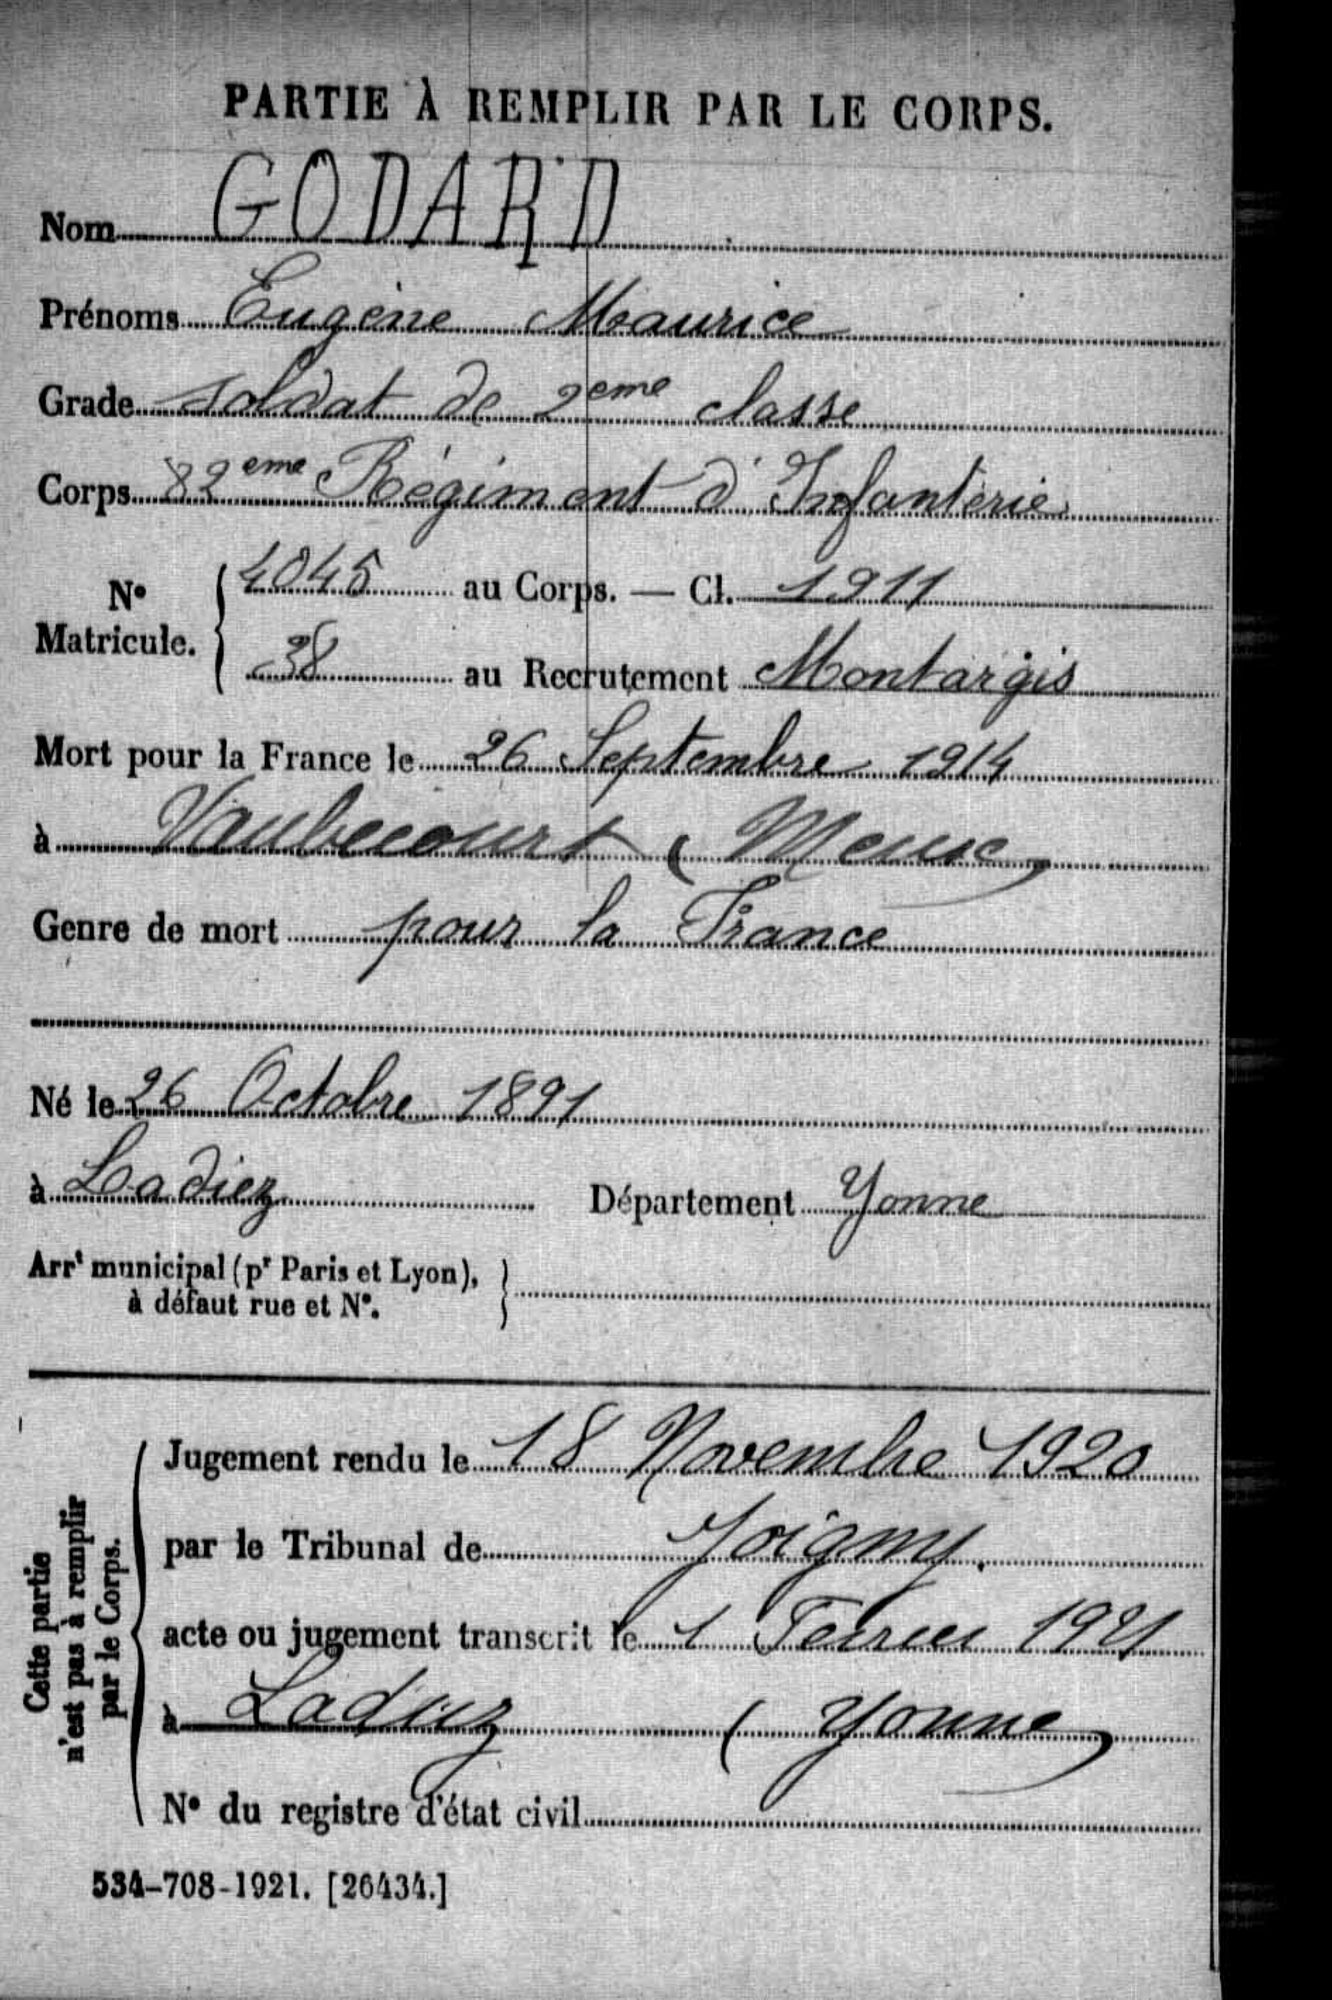 PARTIE À REMPLIR PAR LE CORPS.
Nom GODARD
Prénoms Eugène Maurice
Grade soldat de 2eme classe
Corps 82eme Régiment d'Infanterie
N° Matricule. { 4045 au Corps. — Cl. 1911
38 au Recrutement Montargis
Mort pour la France le 26 Septembre 1914
à Vaubecourt (Meuse)
Genre de mort pour la France
Né le 26 Octobre 1891
à Ladiez Département Yonne
Arrt municipal (pr Paris et Lyon), }
à défaut rue et N°.
Cette partie
n'est pas à remplir
par le Corps.
Jugement rendu le 18 Novembre 1920
par le Tribunal de Joigny.
acte ou jugement transcrit le 1 Février 1921
à Laduz (Yonne)
N° du registre d'état civil
534-708-1921. [26434.]